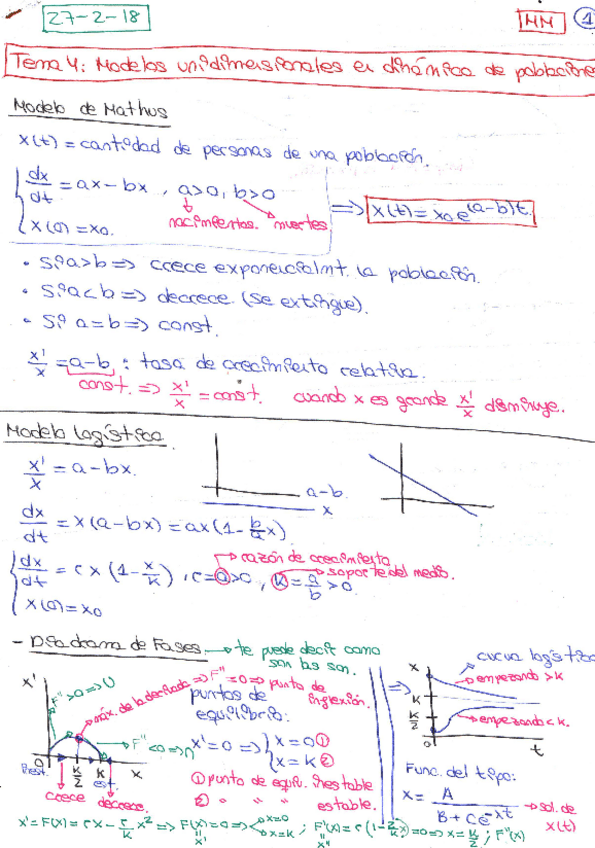 27-2-18
MM 1
Tema 4: Modelos unidimensionales en dinámica de poblaciones
Modelo de Mathus
x(t) = cantidad de personas de una población.
dx/dt = ax - bx , a>0, b>0
x(0) = x0.
nacimientos. muertes
=> x(t) = x0 e^(a-b)t.
• Si a>b => crece exponencialmt. la población.
• Si a<b => decrece (se extingue).
• Si a=b => const.
x'/x = a-b : tasa de crecimiento relativa.
const. => x'/x = const. cuando x es grande x'/x disminuye.
Modelo logístico
x'/x = a - bx.
a-b
x
dx/dt = x(a-bx) = ax(1 - b/a x)
dx/dt = rx(1 - x/k), r=a>0, k = a/b >0
x(0) = x0
razón de crecimiento
soporte del medio.
- Diadrama de Fases. → te puede decir como son las son.
x'
F''>0 => U
máx. de la derivada => F''=0 => punto de inflexión.
F''<0 => ∩
0 k/2 k x
inest. est.
crece decrece.
puntos de equilibrio:
x'=0 => x=0 ①
x=k ②
① punto de equili. inestable
② " " " estable.
=>
x
k
k/2
0
t
curva logística
empezando >k
empezando <k.
Func. del tipo:
x = A / B + Ce^-xt → sol. de x(t)
x' = F(x) = rx - r/k x² => F(x) = 0 => x=0 x=k ; F'(x) = r(1 - 2/k x) = 0 => x = k/2 ; F''(x)
x'
x''